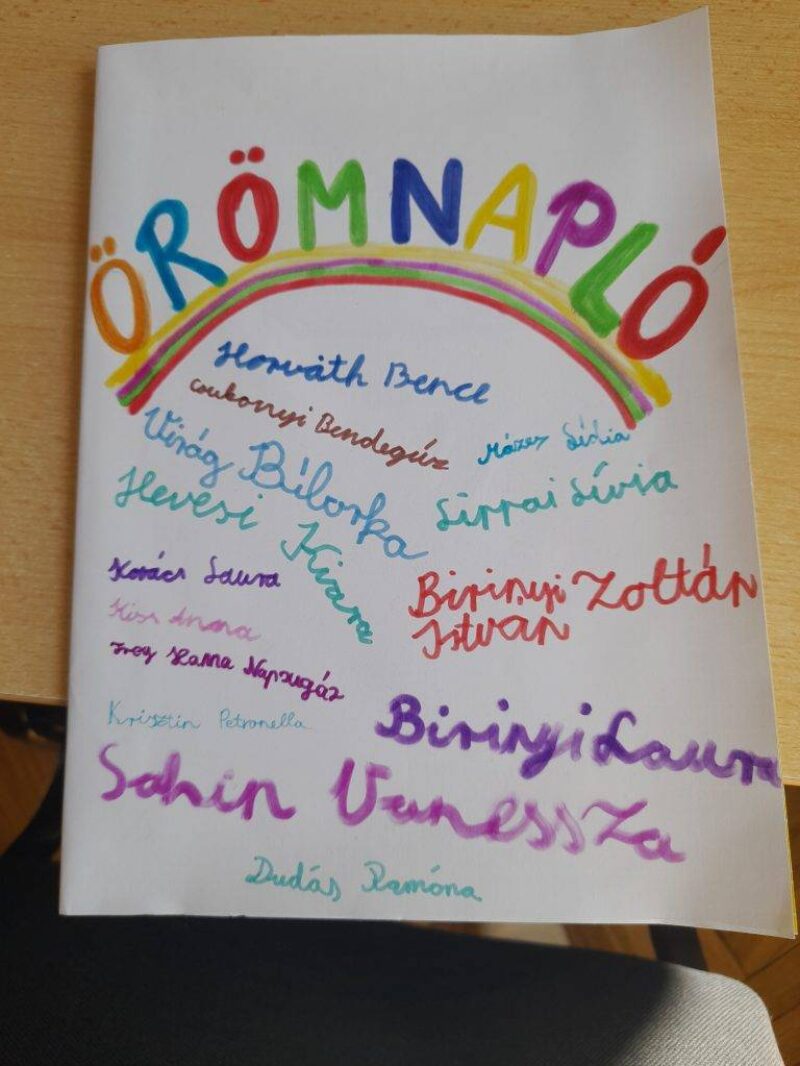 ÖRÖMNAPLÓ
Horváth Bence
Csukonyi Bendegúz
Mázez Lídia
Virág Bíborka
Lippai Lívia
Hevesi Kiara
Kovács Laura
Birinyi Zoltán
István
Kiss Anna
Hanna Napsugár
Krisztin Petronella
Birinyi Laura
Sahin Vanessza
Dudás Ramóna